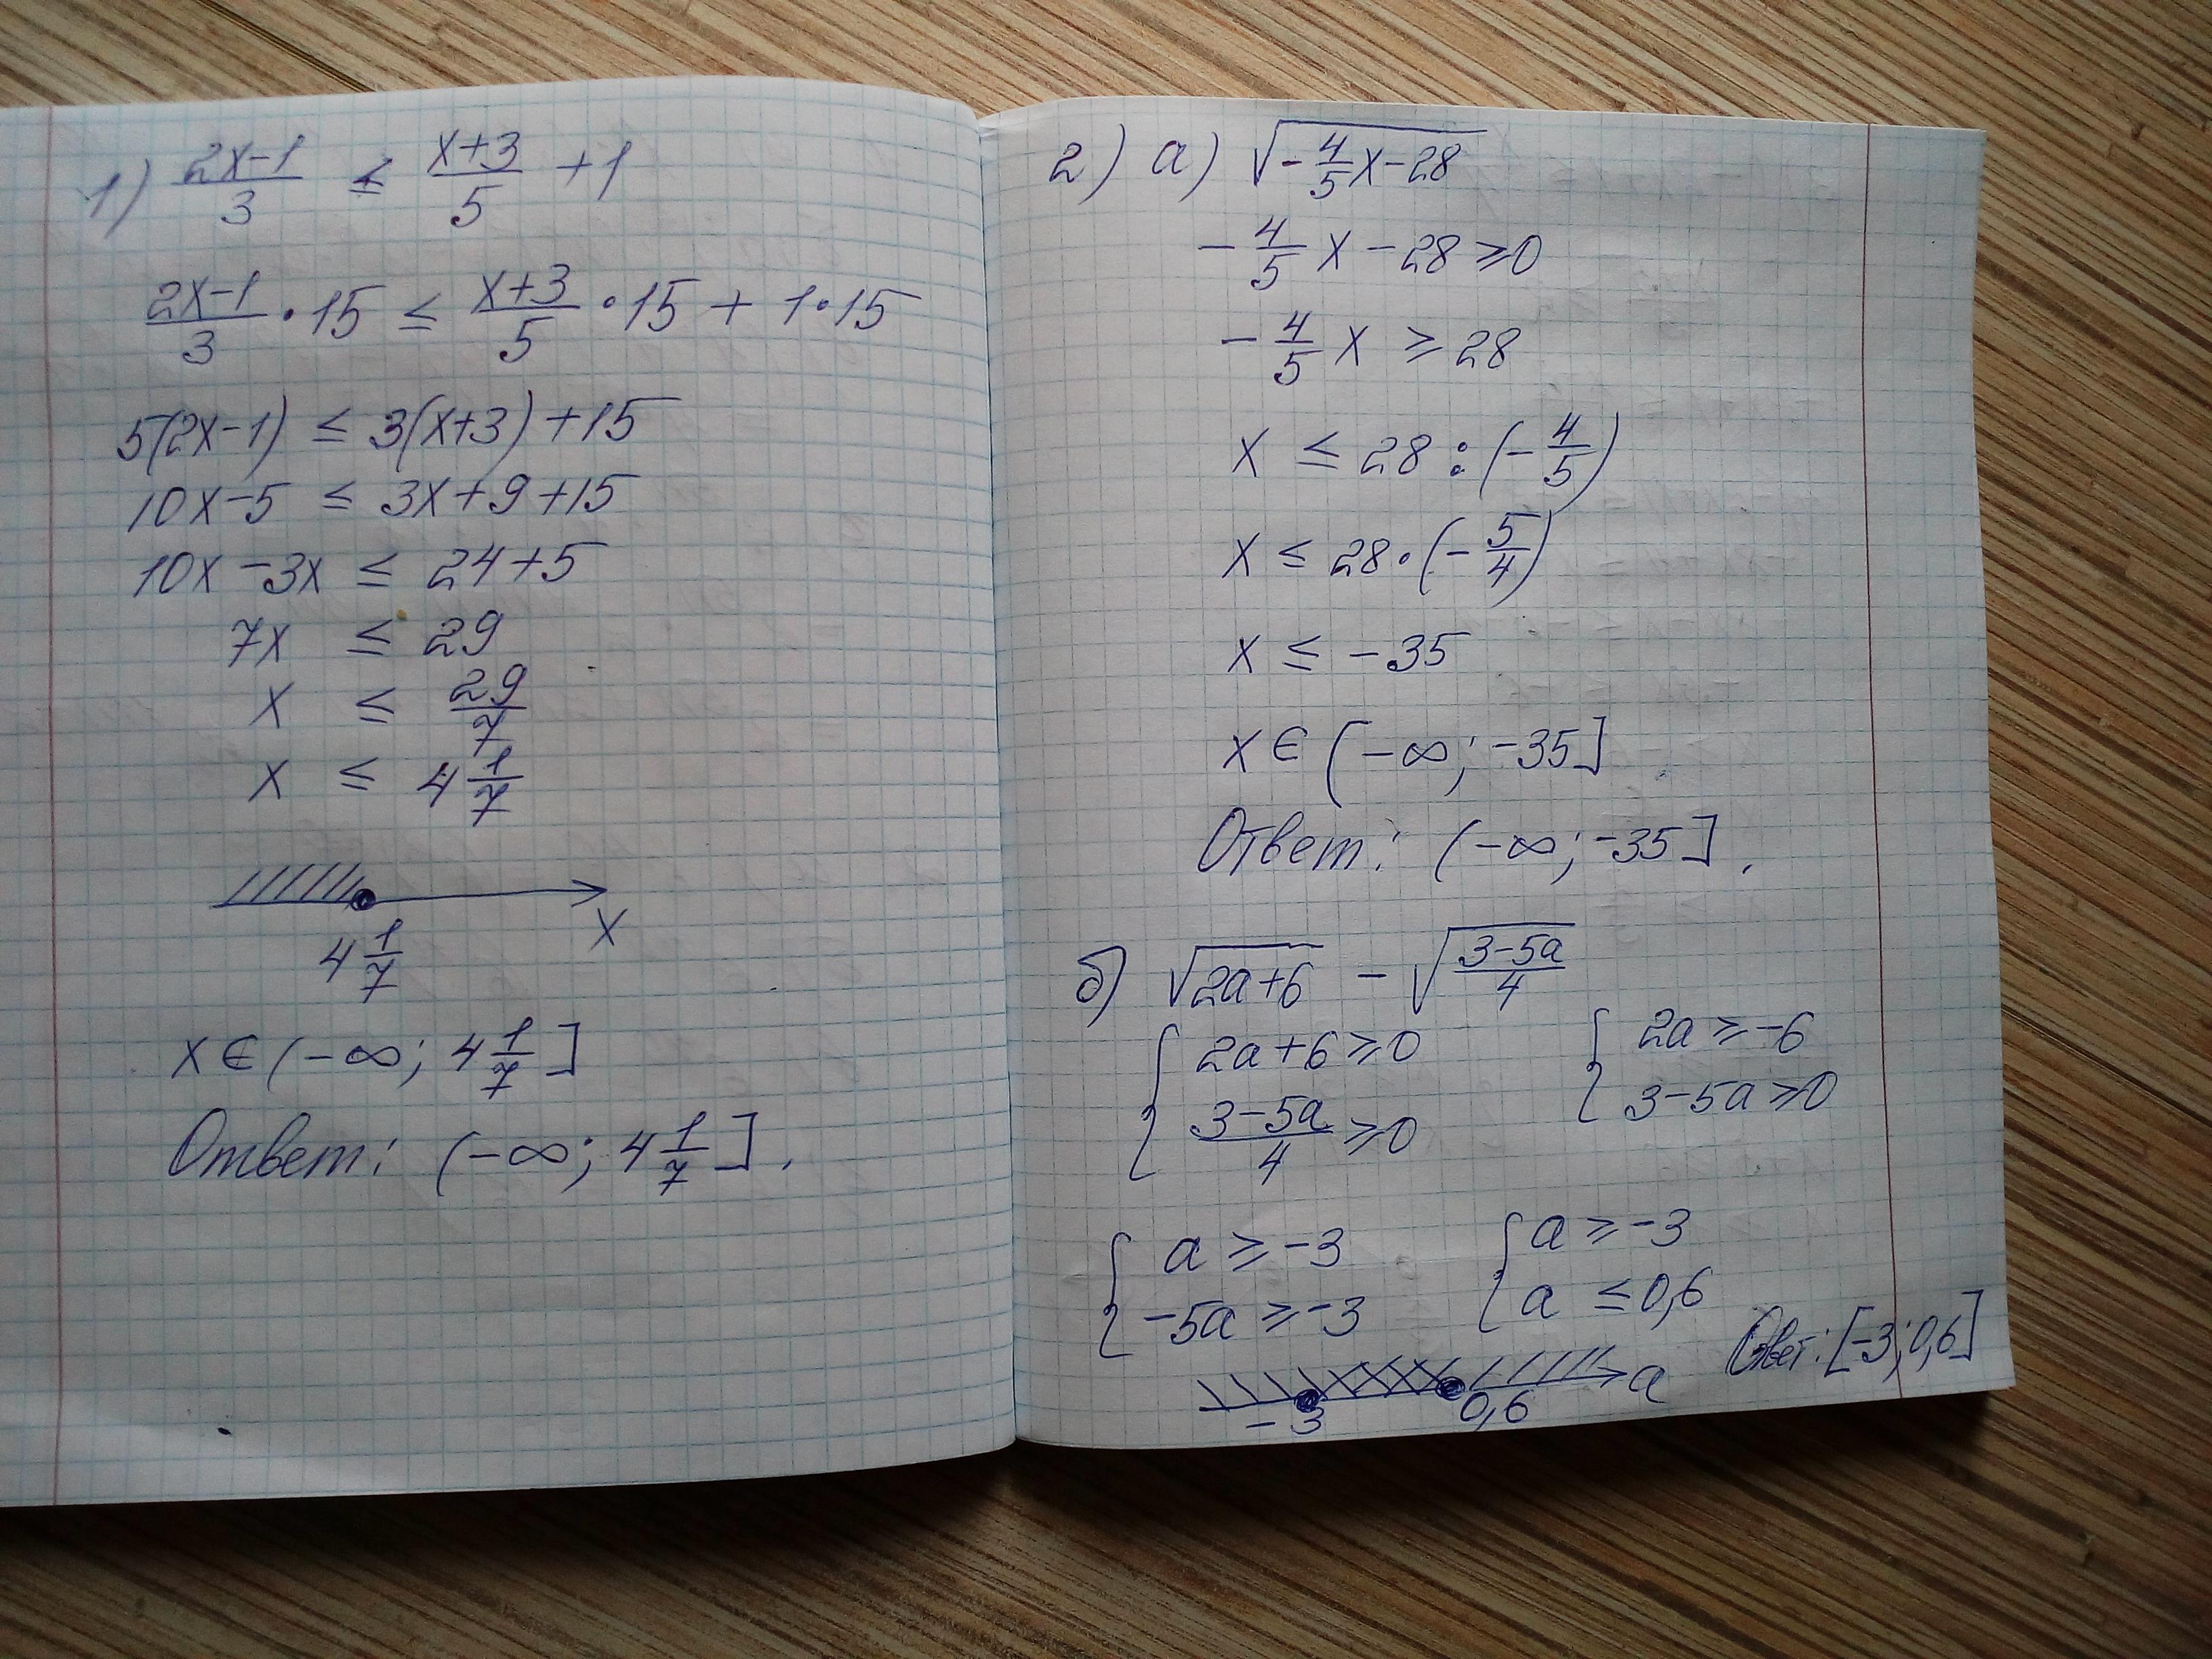 1) (2x-1)/3 ≤ (x+3)/5 + 1
(2x-1)/3 · 15 ≤ (x+3)/5 · 15 + 1·15
5(2x-1) ≤ 3(x+3)+15
10x-5 ≤ 3x+9+15
10x-3x ≤ 24+5
7x ≤ 29
x ≤ 29/7
x ≤ 4 1/7
4 1/7 x
x ∈ (-∞; 4 1/7]
Ответ: (-∞; 4 1/7].
2) а) √(-4/5 x-28)
-4/5 x-28 ≥ 0
-4/5 x ≥ 28
x ≤ 28 : (-4/5)
x ≤ 28·(-5/4)
x ≤ -35
x ∈ (-∞; -35]
Ответ: (-∞; -35].
б) √(2a+6) - √((3-5a)/4)
{ 2a+6 ≥ 0 { 2a ≥ -6
(3-5a)/4 ≥ 0 3-5a ≥ 0
{ a ≥ -3 { a ≥ -3
-5a ≥ -3 a ≤ 0,6
Ответ: [-3; 0,6]
-3 0,6 a